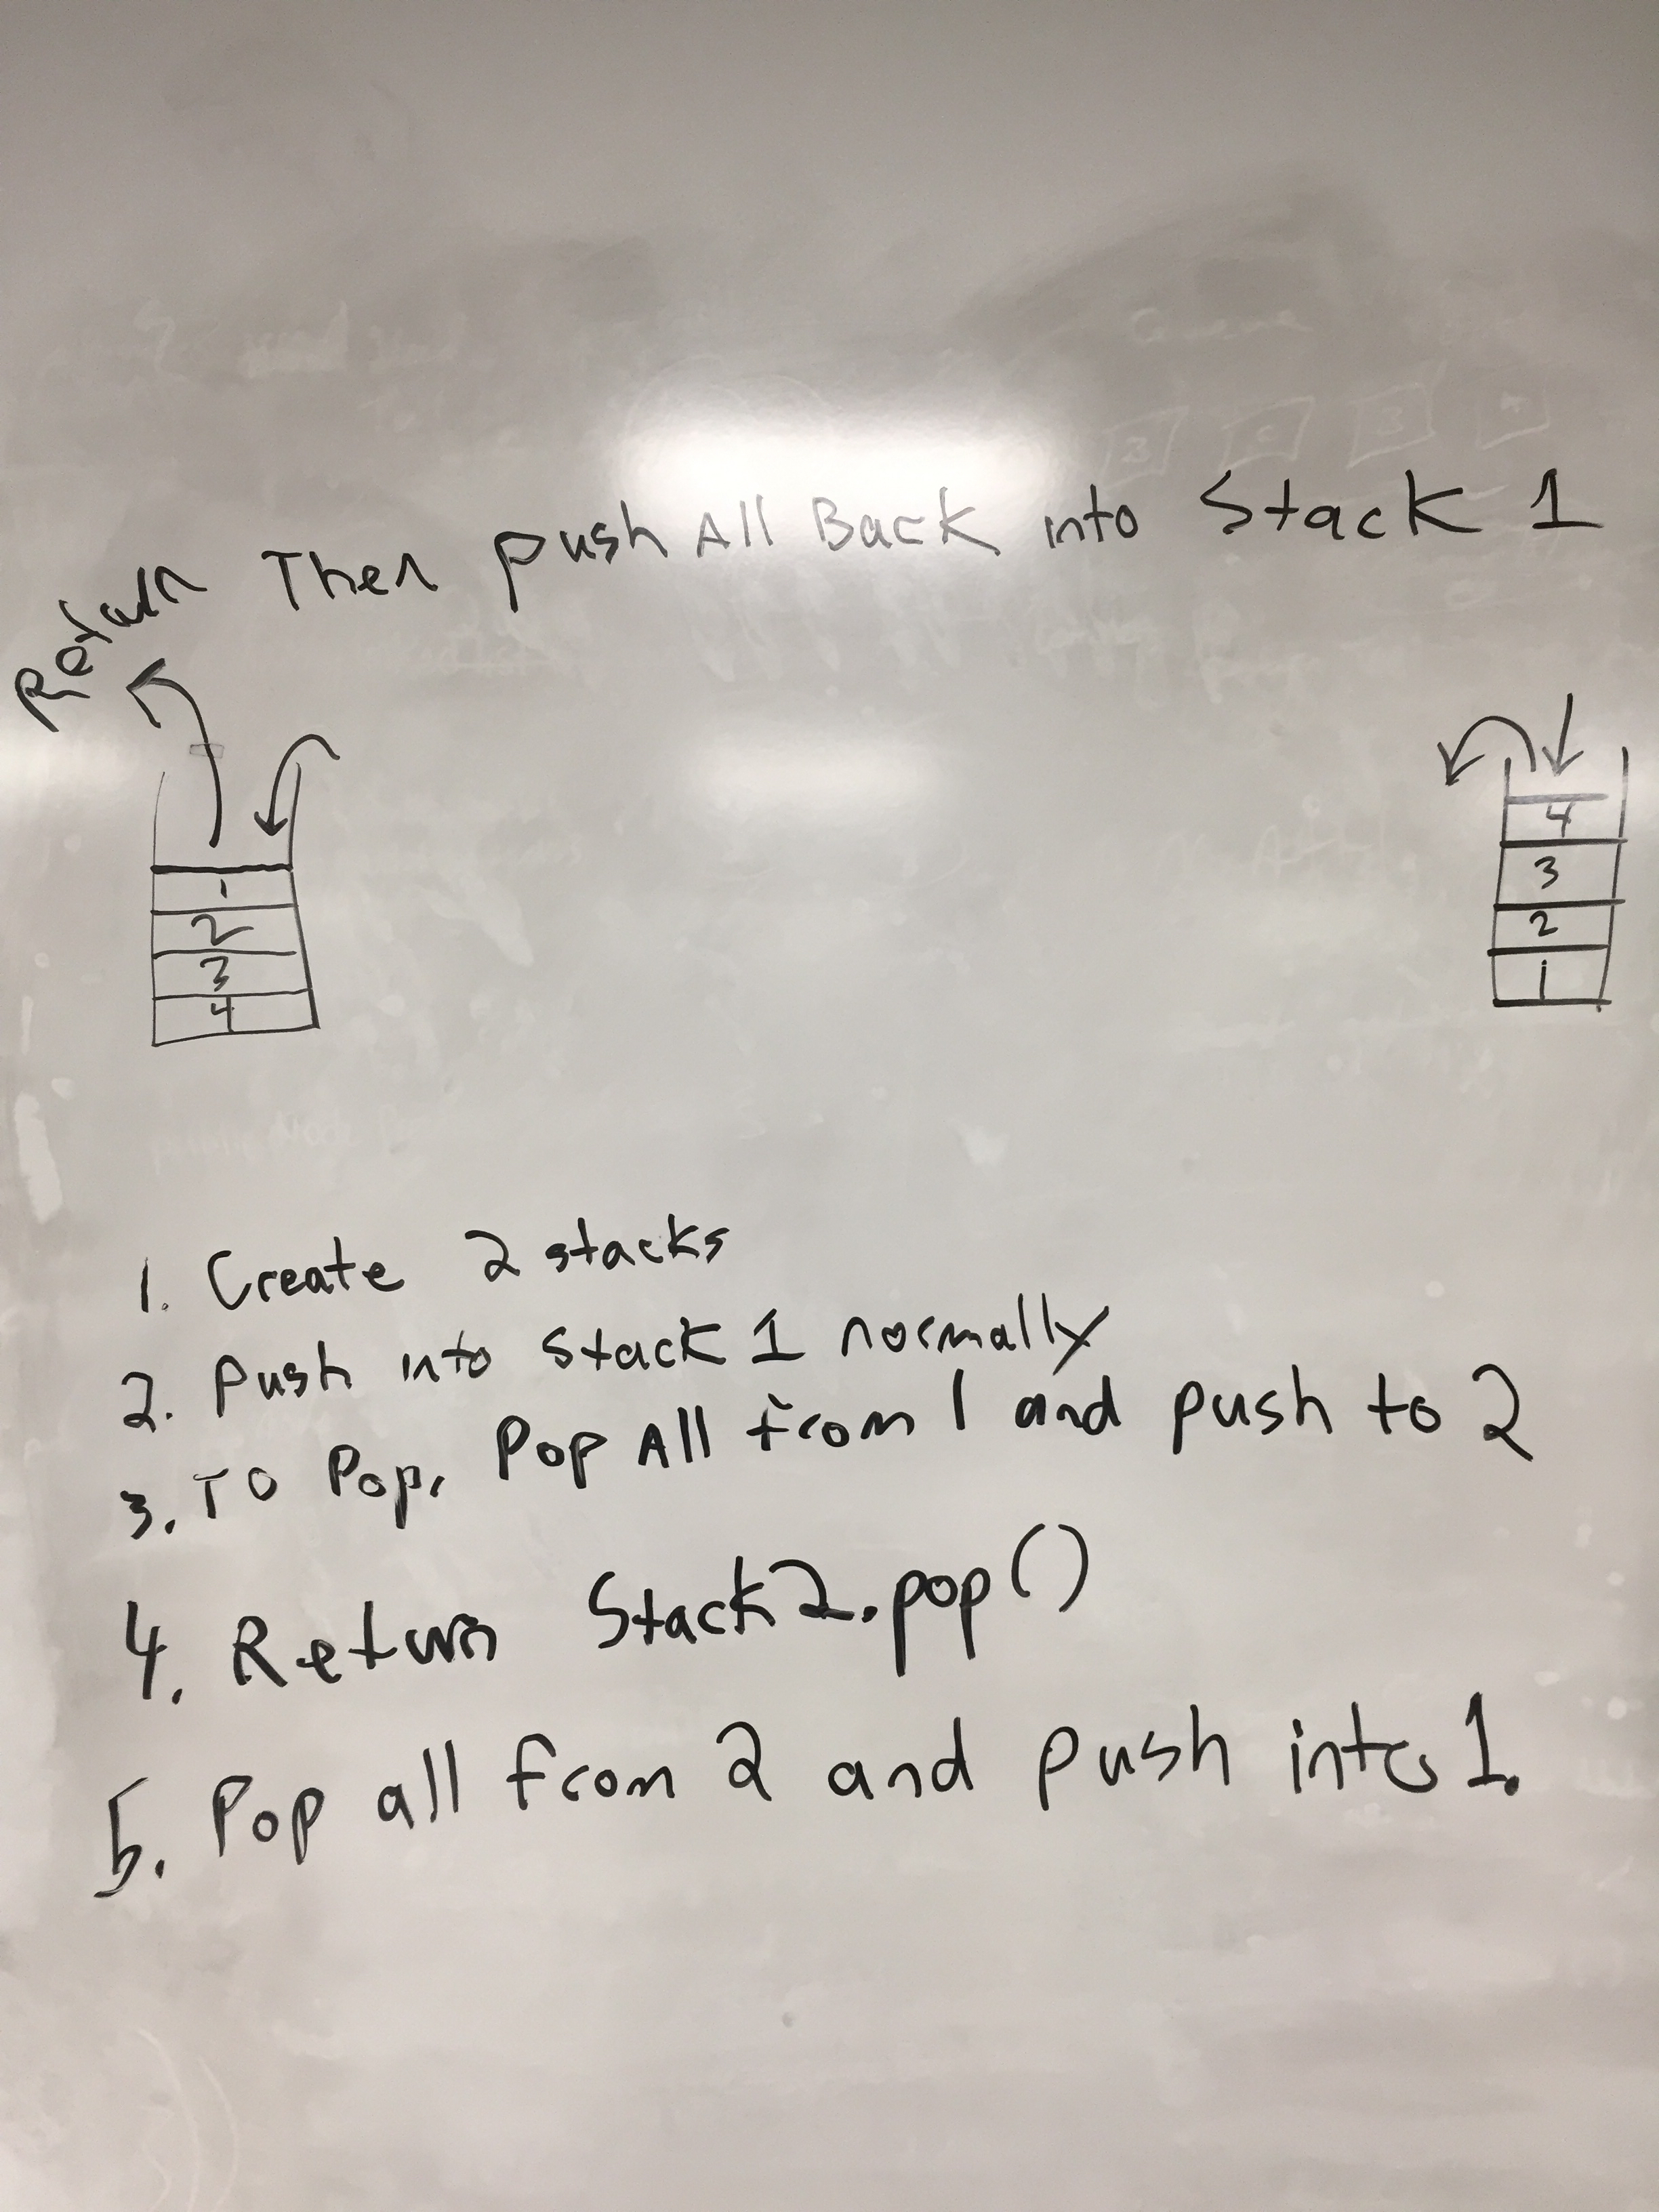 Return Then push All Back into Stack 1
1
2
3
4
4
3
2
1
1. Create 2 stacks
2. Push into Stack 1 normally
3. TO Pop, Pop All from 1 and push to 2
4. Return Stack2.pop()
5. Pop all from 2 and push into 1.